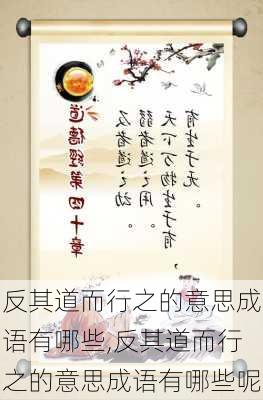 道德經第四十章
反者道之动
弱者道之用。
天下万物生于有
有生于无。
反其道而行之的意思成
语有哪些,反其道而行
之的意思成语有哪些呢